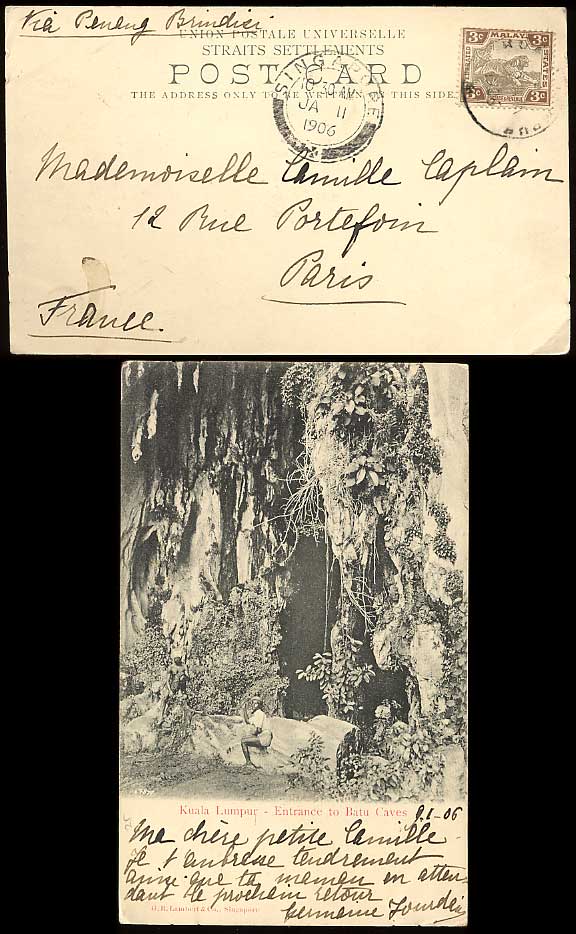 Via Penang Brindisi
UNION POSTALE UNIVERSELLE
STRAITS SETTLEMENTS
POST CARD
THE ADDRESS ONLY TO BE WRITTEN ON THIS SIDE
SINGAPORE
10.30 AM
JA 11
1906
3c MALAY STATES 3c
Mademoiselle Camille Caplain
12 Rue Portefoin
Paris
France.
Kuala Lumpur - Entrance to Batu Caves
9.1-06
Ma chère petite Camille
Je t'embrasse tendrement
ainsi que ta maman en atten-
dant le prochain retour
Germaine
G.R. Lambert & Co., Singapore